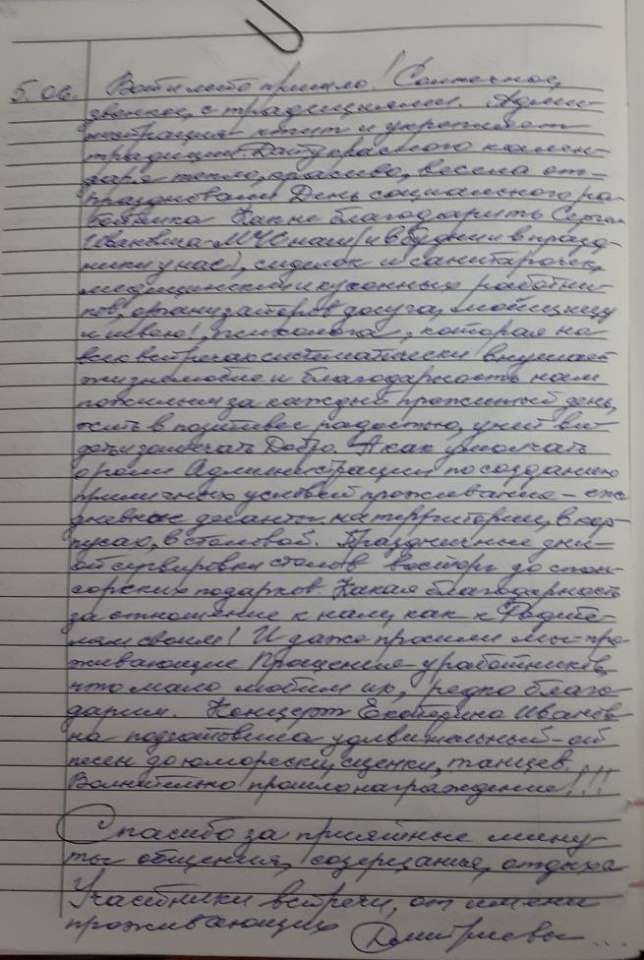 5.06. Вот и лето пришло! Солнечное,
звонкое, с традициями. Адми-
нистрация чтит и укрепляет
традиции. Дату красного кален-
даря тепло, красиво, весело от-
праздновали День социального ра-
ботника. Как не благодарить Сергея
Ивановича - МЧС наш (и в будни и в празд-
ники у нас), сиделок и санитарочек,
медицинских и кухонных работни-
ков, организаторов досуга, мойщицу
и швею!, психолога, которая на
всех встречах систематически внушает
жизнелюбие и благодарность нам
пожилым за каждый прожитый день,
жить в позитиве, радостью, учит ви-
деть и замечать Добро. А как умолчать
о роли Администрации по созданию
приличных условий проживания - еже
дневные десанты на территории, в кор-
пусах, в столовой. Праздничные дни -
от сервировки столов восторг до спон-
сорских подарков. Какая благодарность
за отношение к нам, как к Родите-
лям своим! И даже просили мы - про-
живающие Прощения у работников,
что мало любим их, редко благо-
дарим. Концерт Екатерина Иванов-
на подготовила удивительный - от
песен до юморески, сценки, танцев.
Волнительно прошло награждение!!!
Спасибо за приятные мину-
ты общения, созерцания, отдыха
Участники встречи, от имени
проживающих Дмитриевы...